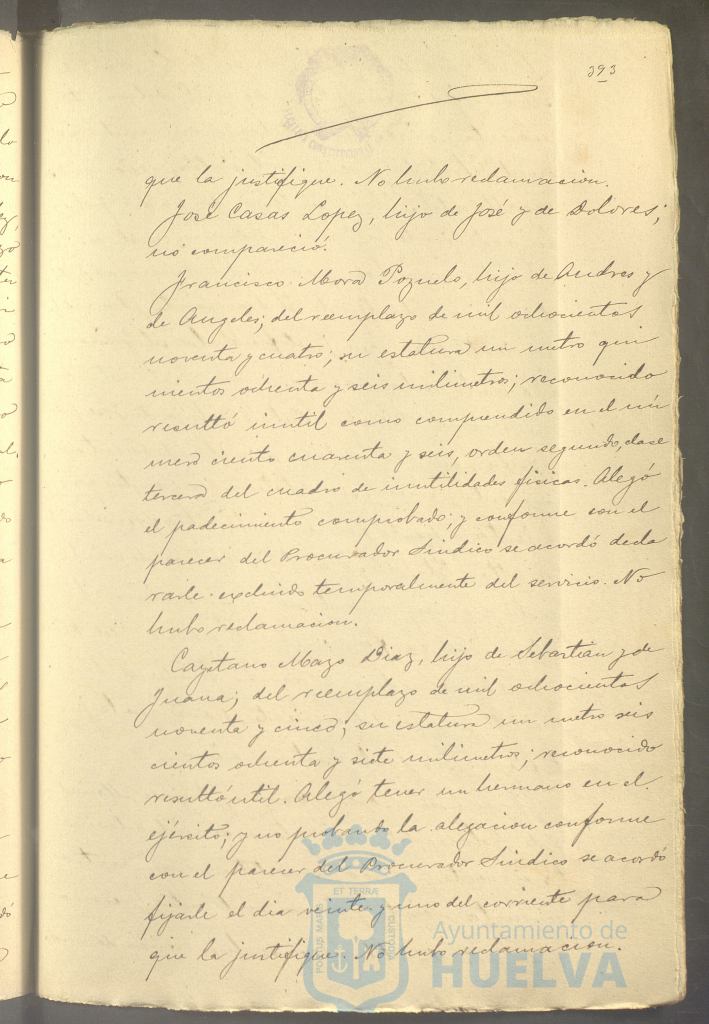 393
que la justifique. No hubo reclamacion.
José Casas Lopez, hijo de José y de Dolores;
no compareció.
Francisco Mora Pozuelo, hijo de Andres y
de Angeles; del reemplazo de mil ochocientos
noventa y cuatro; su estatura un metro qui
nientos ochenta y seis milimetros; reconocido
resultó inutil como comprendido en el nú
mero ciento cuarenta y seis, orden segundo, clase
tercera del cuadro de inutilidades fisicas. Alegó
el padecimiento comprobado; y conforme con el
parecer del Procurador Sindico se acordó decla
rarle excluido temporalmente del servicio. No
hubo reclamacion.
Cayetano Mazo Diaz, hijo de Sebastian y de
Juana; del reemplazo de mil ochocientos
noventa y cinco; su estatura un metro seis
cientos ochenta y siete milimetros; reconocido
resultó util. Alegó tener un hermano en el
ejército; y no probando la alegacion conforme
con el parecer del Procurador Sindico se acordó
fijarle el dia veinte y uno del corriente para
que la justifique. No hubo reclamacion.
PORTUS MARIS ET TERRÆ CUSTODIA
Ayuntamiento de
HUELVA